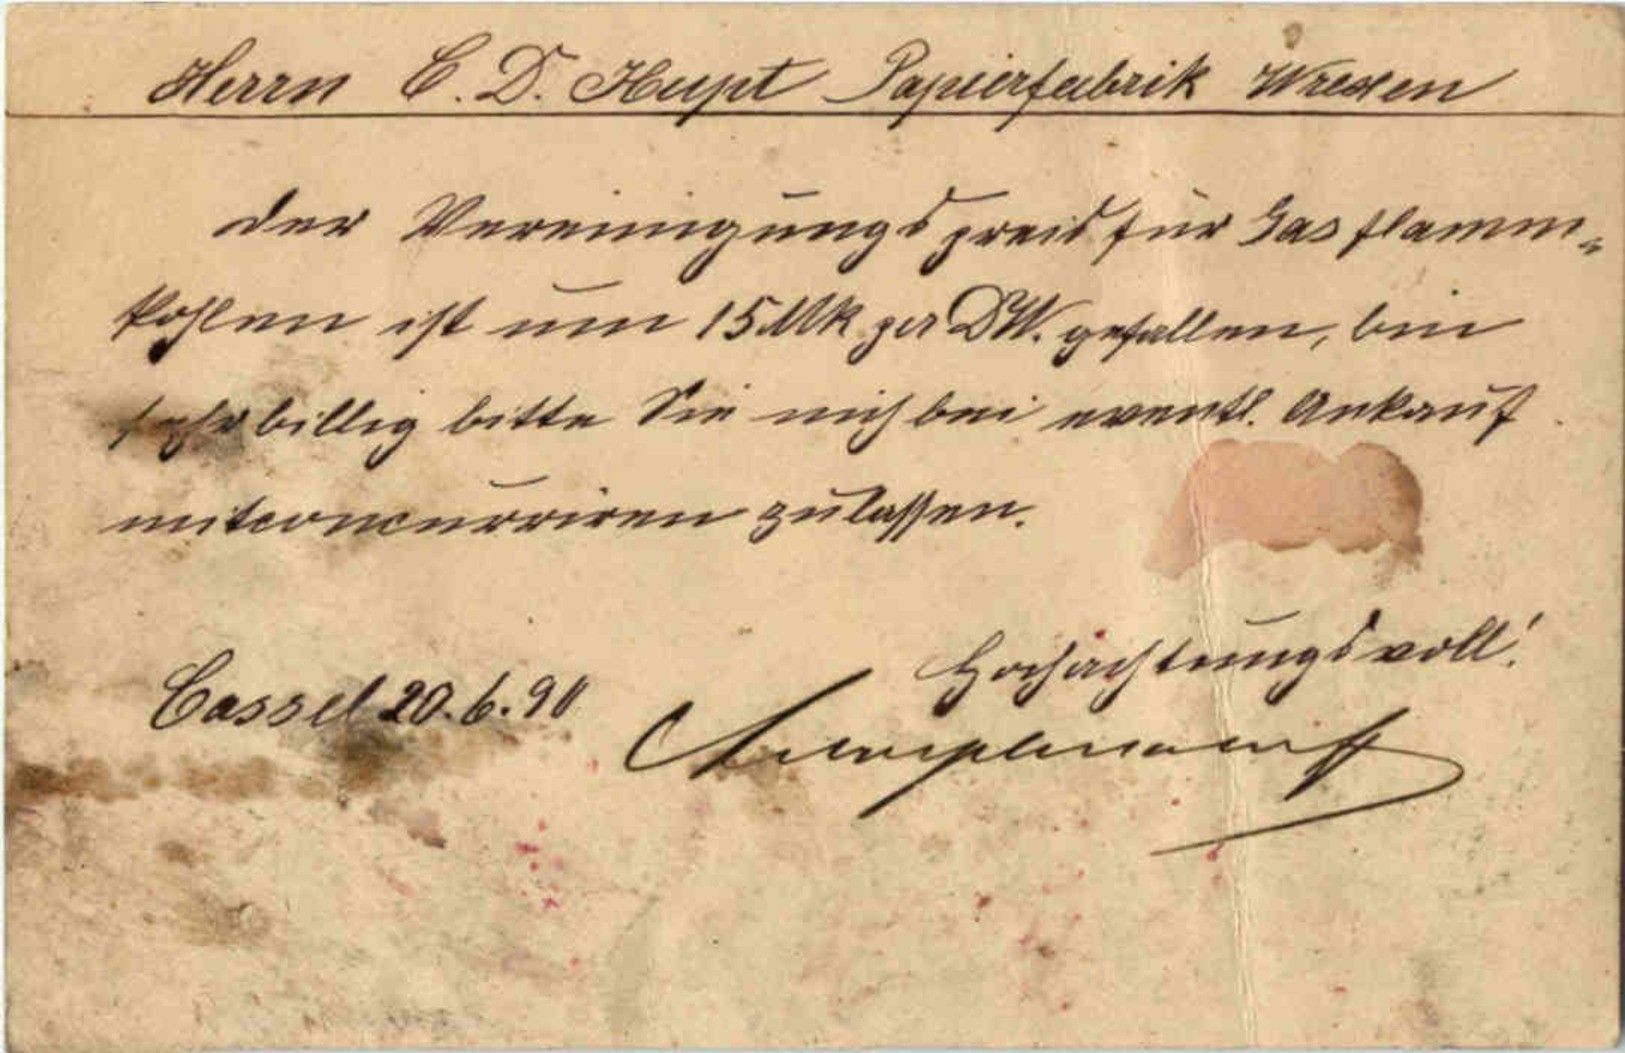 Herrn C. D. Hupt Papierfabrik Wrexen
der Vereinigungspreis für Gasflamm-
kohlen ist um 15 Mk per DW. gefallen, bin
sehr billig bitte Sie mich bei eventl. Ankauf
mitconcurriren zulassen.
Hochachtungsvoll!
Cassel 20.6.90